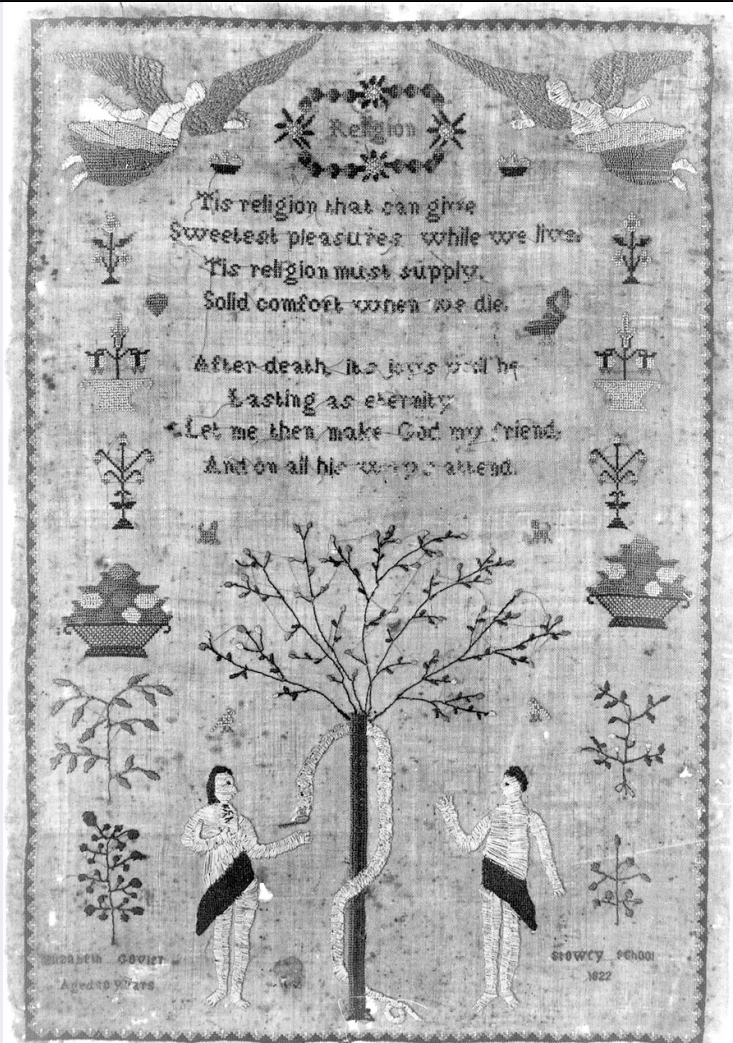 Religion
Tis religion that can give
Sweetest pleasures while we live.
Tis religion must supply,
Solid comfort when we die.
After death, its joys will be
Lasting as eternity
Let me then make God my friend,
And on all his ways attend.
Elizabeth Govier
Aged 10 years
Stowey School
1822